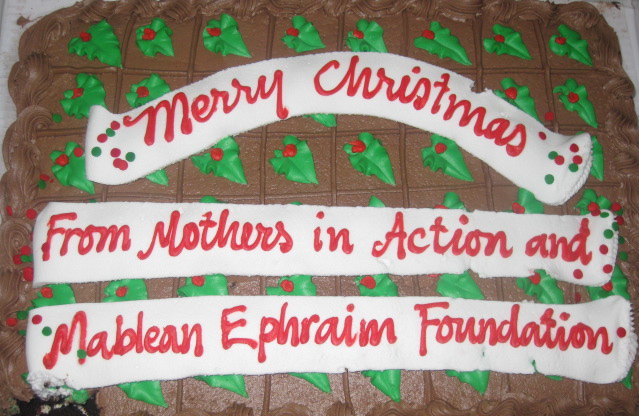 Merry Christmas
From Mothers in Action and
Mablean Ephraim Foundation